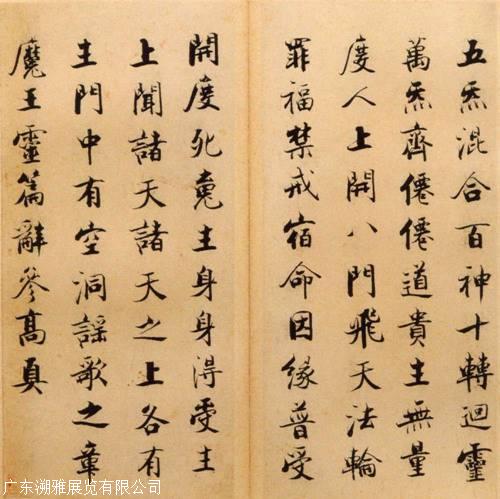 五炁混合百神十轉迴靈
萬炁齊僊僊道貴生無量
度人上開八門飛天法輪
罪福禁戒宿命因緣普受
開度死䰟生身身得受生
上聞諸天諸天之上各有
生門中有空洞謠歌之章
魔王靈篇辭參高真
广东溯雅展览有限公司